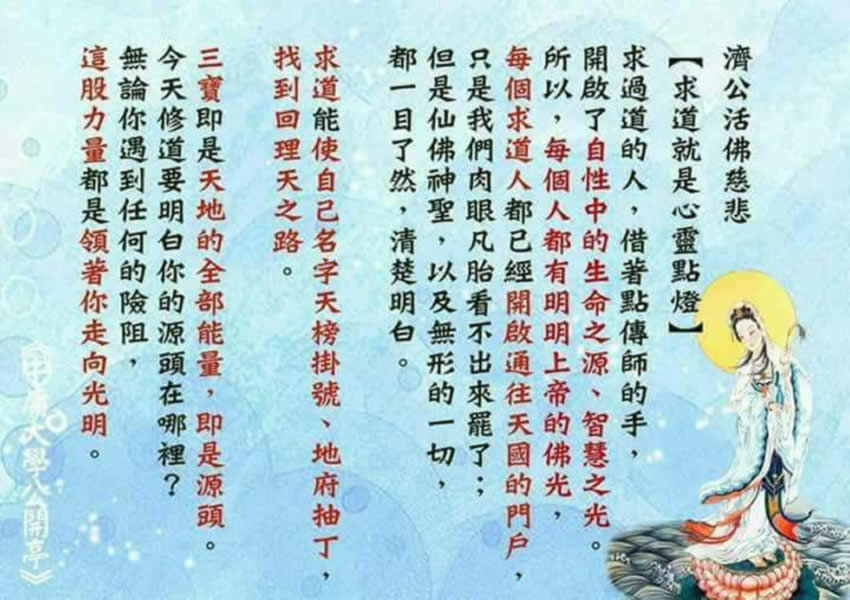 濟公活佛慈悲
【求道就是心靈點燈】
求過道的人，借著點傳師的手，
開啟了自性中的生命之源、智慧之光。
所以，每個人都有明明上帝的佛光，
每個求道人都已經開啟通往天國的門戶，
只是我們肉眼凡胎看不出來罷了；
但是仙佛神聖，以及無形的一切，
都一目了然，清楚明白。
求道能使自己名字天榜掛號、地府抽丁，
找到回理天之路。
三寶即是天地的全部能量，即是源頭。
今天修道要明白你的源頭在哪裡？
無論你遇到任何的險阻，
這股力量都是領著你走向光明。